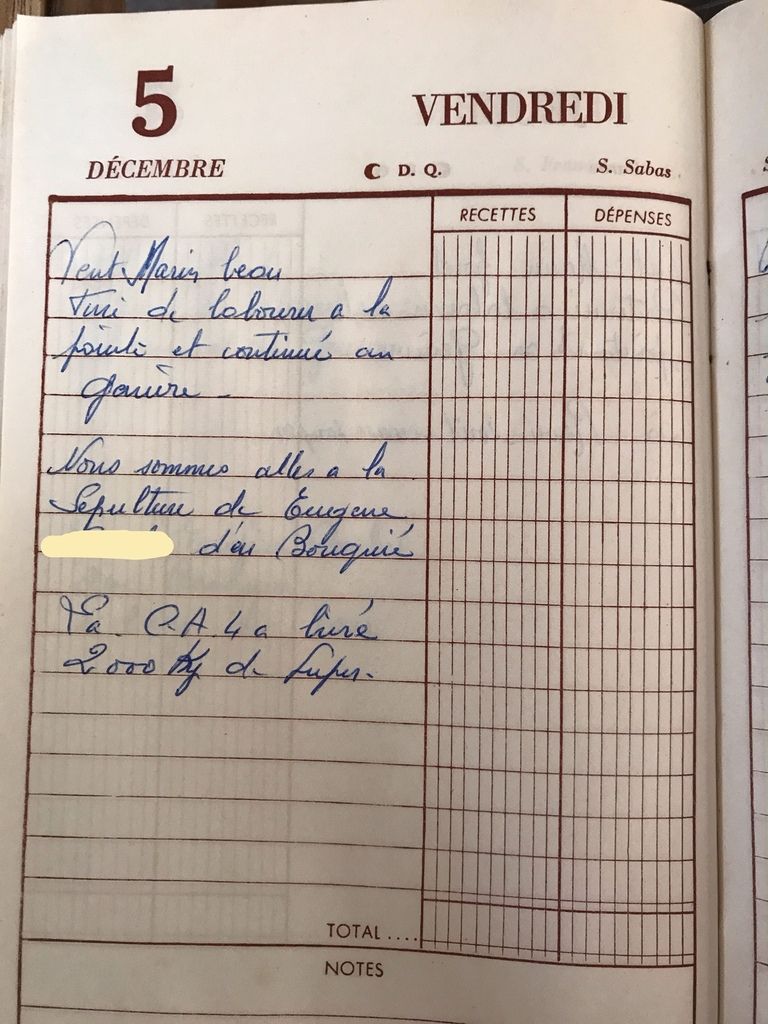 5
VENDREDI
DÉCEMBRE
D. Q.
S. Sabas
RECETTES
DÉPENSES
Vent Marin beau
Fini de labourer a la
pointe et continué au
Nous sommes alles a la
Sepulture de Eugene
d'en Bouquié
La C.A.4 a livré
2000 Kg de Super.
TOTAL ....
NOTES